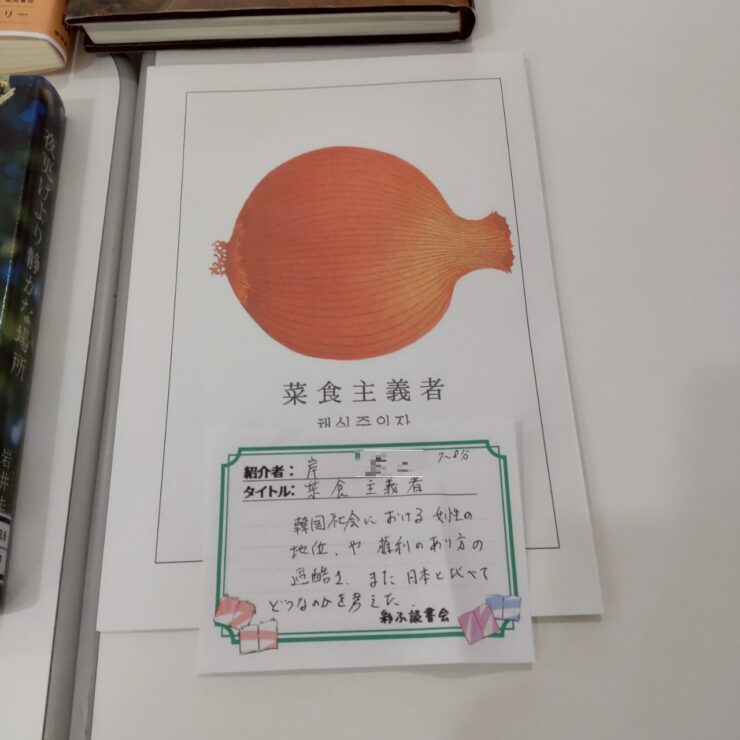 リー
夜更けより静かな場所
岩井
菜食主義者
채식주의자
紹介者: 岸
7〜8分
タイトル: 菜食主義者
韓国社会における女性の
地位、や権利のあり方の
過酷さ、また日本と比べて
どうなのかを考えた.
彩ふ読書会